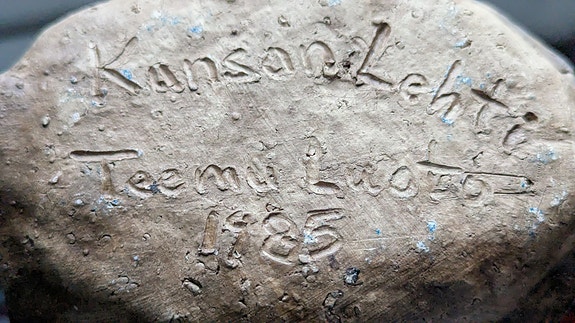 Kansan Lehti
Teemu Luoto
1985